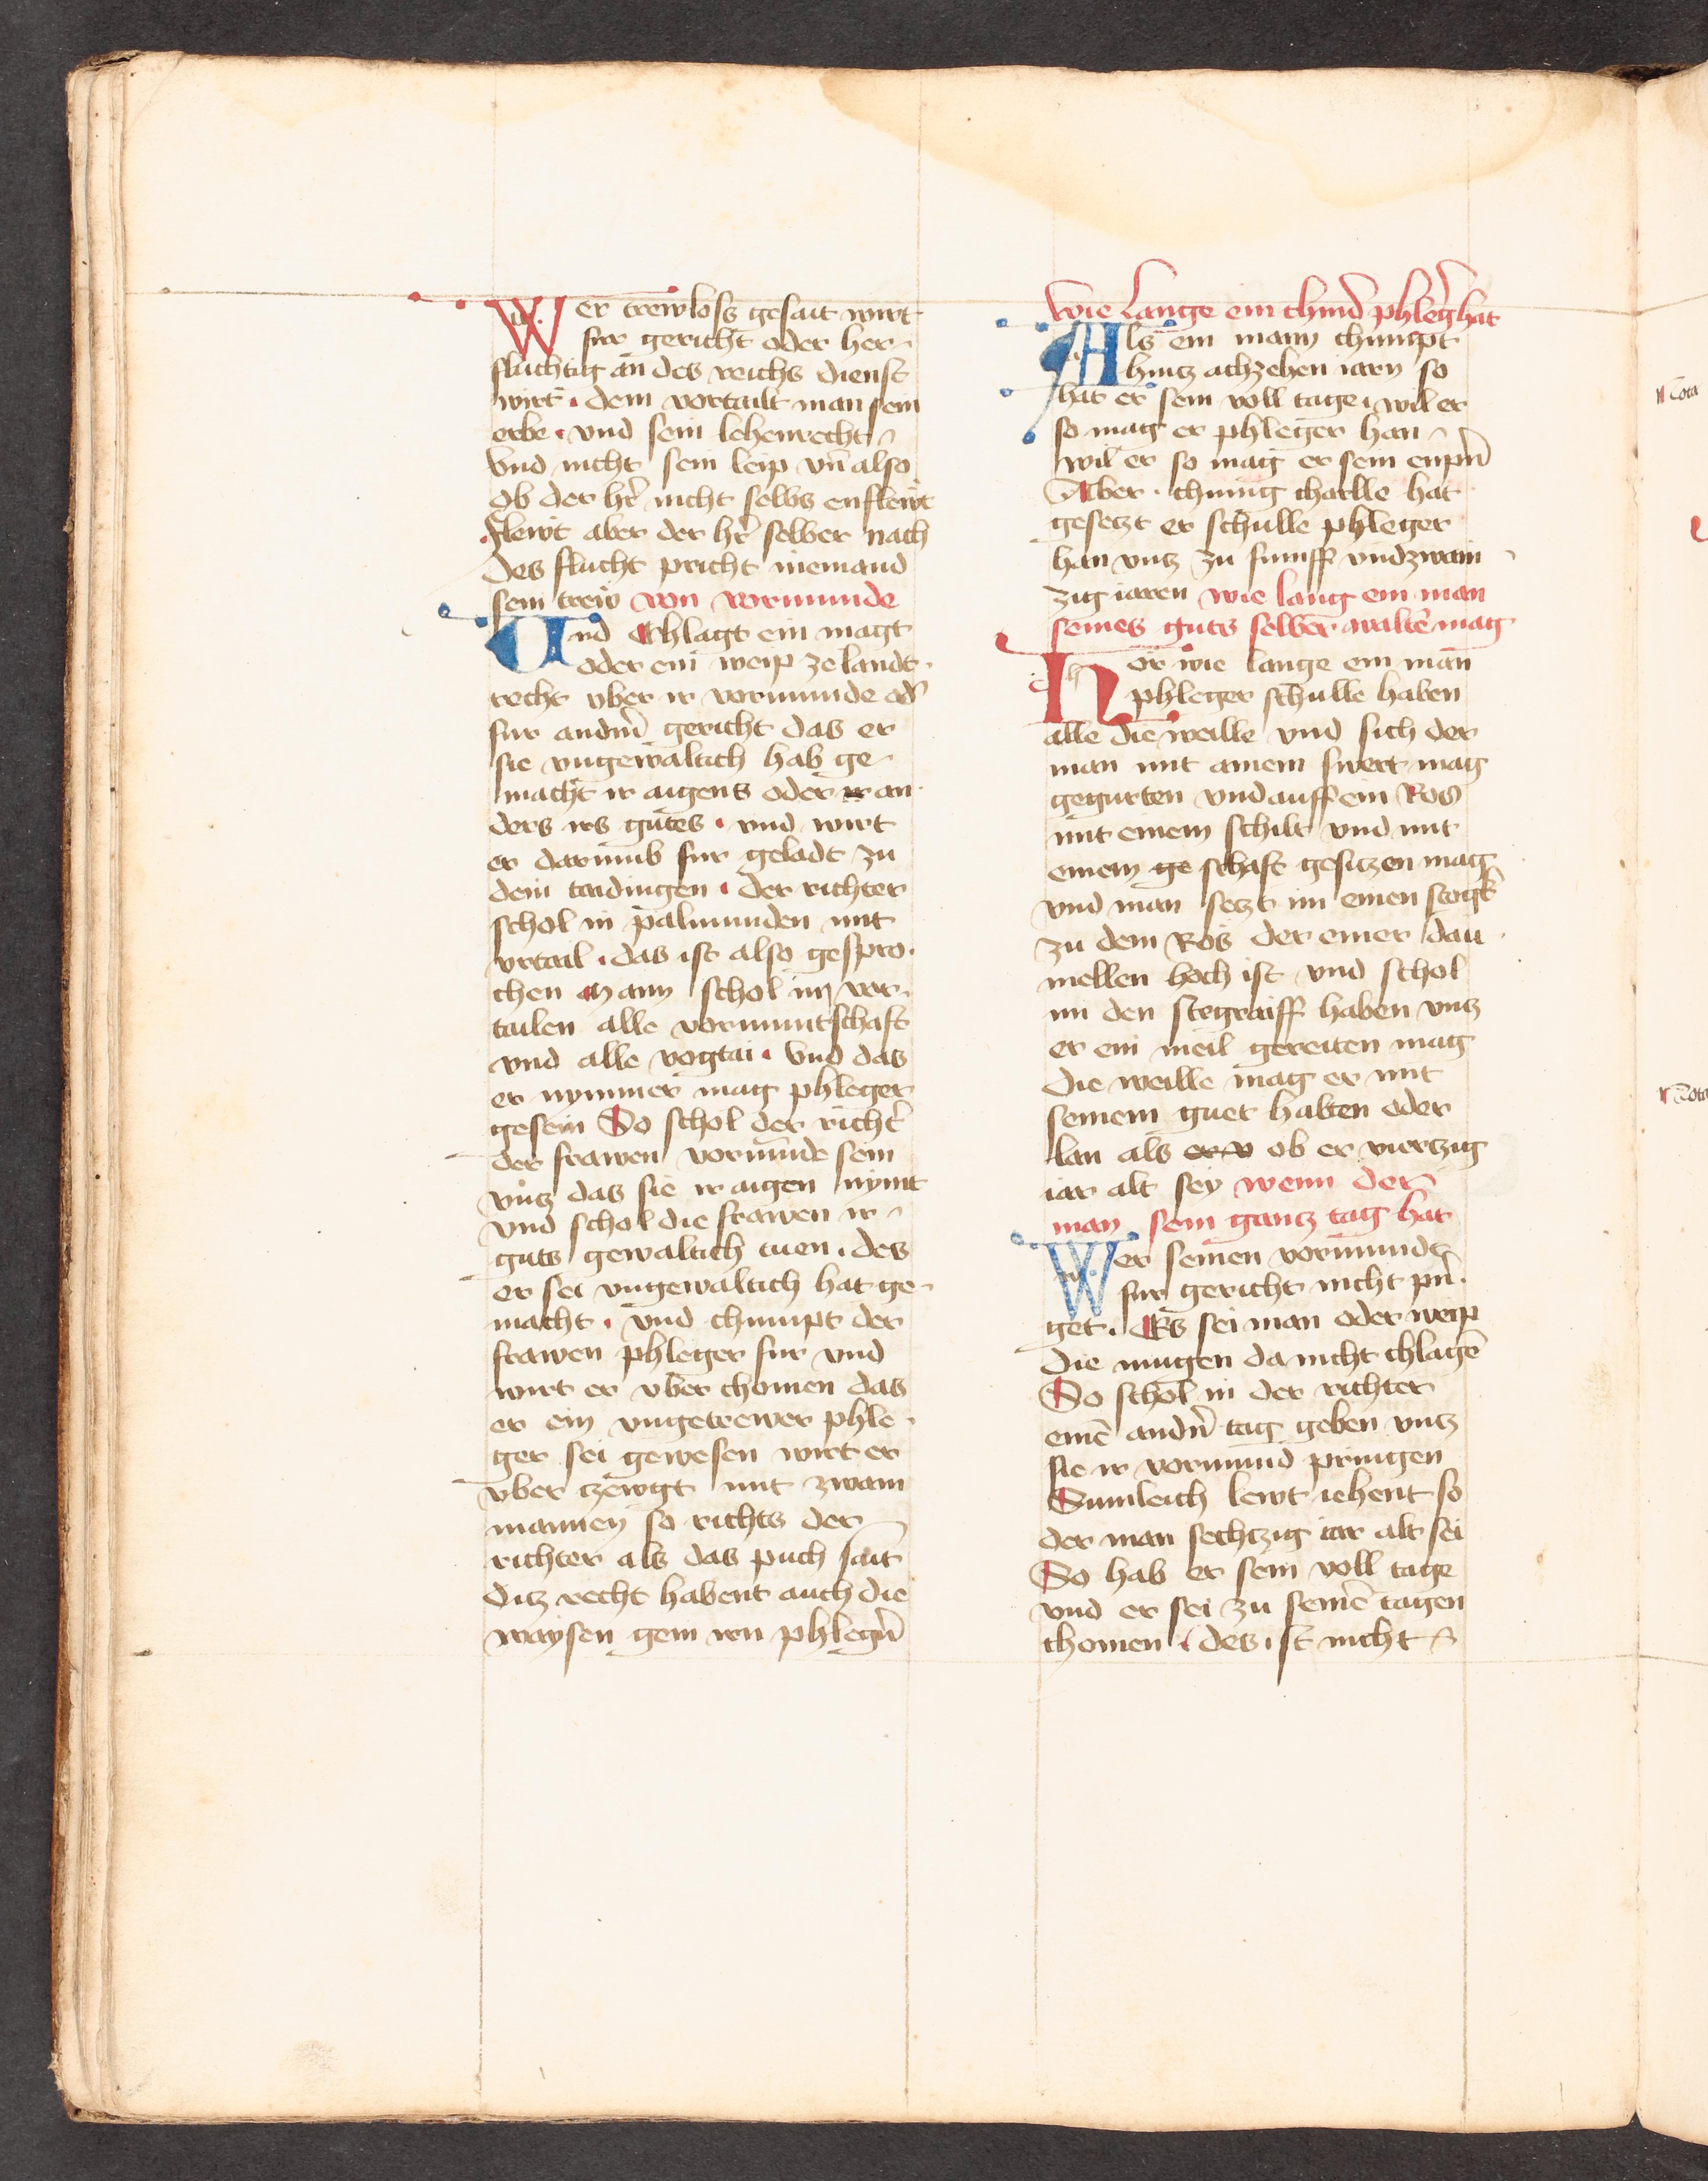 Wer trewloss gesait wirt
fur gericht oder her
fluchtig an des reichs dienst
wirt · dem vortailt man sein
erbe · vnd sein lehenrecht
Vnd nicht sein leip vn̄ also
ob der hr̄ nicht selbs enflewt
flewt aber der hr̄ selber nach
des flucht pricht niemand
sein trew von vormunde
Vnd Chlagt ein magt
oder ein weip ze landt
recht vber ir vormunde od̄
fur andm̄ gericht das er
sie vngewaltich hab ge
macht ir aigens oder ir an
ders irs gutes · vnd wirt
er darumb fur geladt zu
dem taidingen · der richter
schol in palmunden mit
vrtail · das ist also gespro
chen Mann schol im ver
tailen alle vormuntschaft
vnd alle vogtai · Vnd das
er nymmer mag phleger
gesein So schol der richt̄
der frawen vormunde sein
vntz das sie ir aigen nymt
vnd schol die frawen ir
guts gewaltich tuen · des
er sei vngewaltich hat ge
macht · vnd chumpt der
frawen phleger fur vnd
wirt er vber chomen das
er ein vngetrewer phle
ger sei gewesen wirt er
vber czewgt mit zwain
mannen so richts der
richter als das puch sait
ditz recht habent auch die
waysen gein irn phlegn̄
wie lange ein chind phleḡ hat
Als ein man chumpt
hintz achzehen iarn so
hat er sein voll tage · wil er
so mag er phleger han
wil er so mag er sein enpn̄
Aber · chunig charlle hat
gesetzt er schulle phleger
han vntz zu funiff vndzwain
zig iaren wie lang ein man
seines guts selber walten̄ mag
Hor wie lange ein man
phleger schulle haben
alle die weille vnd sich der
man mit ainem swert mag
gegurten vnd auff ein Ros
mit einem schilt vnd mit
einem ge schaft gesitzen mag
vnd man setzt im einen stogk
zu dem Ros der einer dau
mellen hoch ist vnd schol
im den stegraiff haben vntz
er ein meil gereiten mag
die weille mag er mit
seinem guet halten oder
lan als er v ob er viertzig
iar alt sey wenn der
man sein gantz tag hat
Wer seinen vormunde
fur gericht nicht pn̄
get · Es sei man oder weip
die mugen da nicht chlagē
So schol in der richter
einē andn̄ tag geben vntz
sie ir vormund pringen
Sumleich lewt iehent so
der man sechtzig iar alt sei
So hab er sein voll tage
vnd er sei zu seinē tagen
chomen · des ist nicht